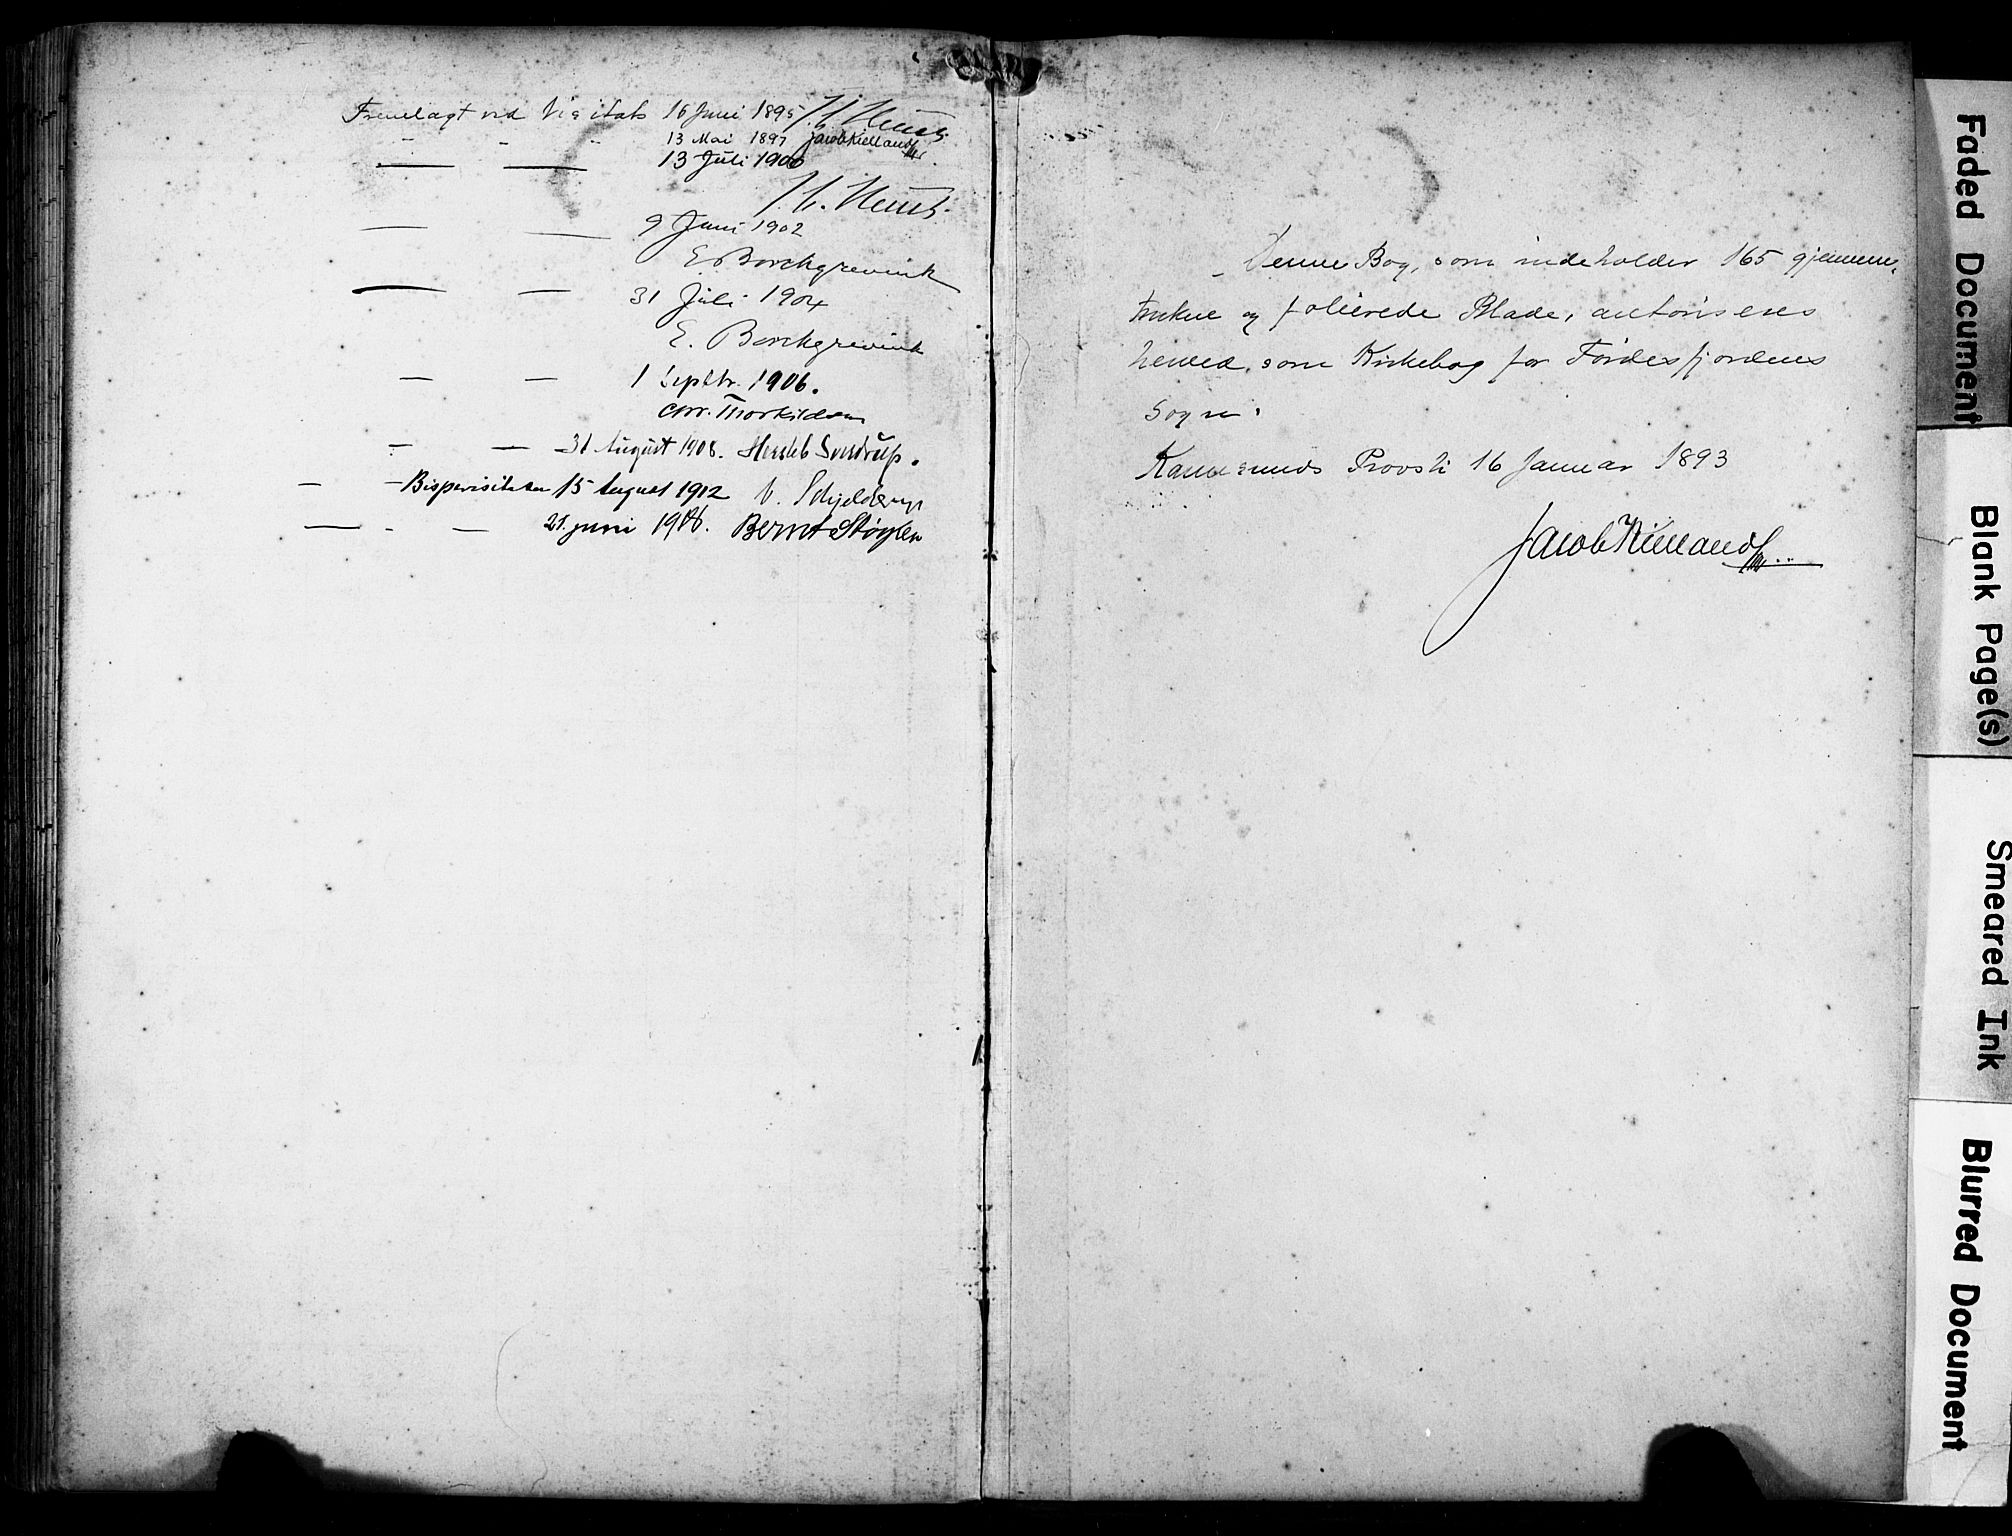 Fremlagt ved Visitats 16 Juni 1895
" - " 13 Mai 1897 Jacob Kielland
— — 13 Juli 1900
— — 9 Juni 1902
E. Borchgrevink
— — 31 Juli 1904
E. Borchgrevink
— — 1 Septbr. 1906.
Chr. Thorkildsen
— — 31 August 1908. Hersleb Sverdrup.
— - Bispevisitatsen 15 August 1912 V. Schjelderup
— - — 21. juni 19 Bernt Støylen
Denne Bog, som indeholder 165 gjennem-
trukne og folierede Blade, autoriseres
herved som Kirkebog for Førdesfjordens
Sogn.
Karmsunds Provsti 16 Januar 1893
Jacob Kielland
Faded Document
Blank Page(s)
Smeared Ink
Blurred Document